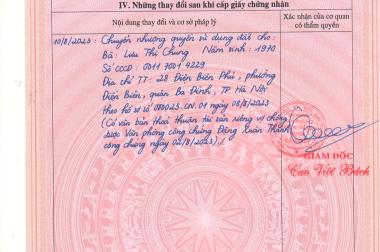 IV. Những thay đổi sau khi cấp giấy chứng nhận
Nội dung thay đổi và cơ sở pháp lý
Xác nhận của cơ quan
có thẩm quyền
10/8/2023: Chuyển nhượng quyền sử dụng đất cho:
Bà: Lưu Thị Chung Năm sinh: 1970
Số CCCD: 001170014229
Địa chỉ TT: 28 Điện Biên Phủ, phường
Điện Biên, quận Ba Đình, TP Hà Nội
theo hồ sơ số 080023.CN.01 ngày 08/8/2023
(Có văn bản thoả thuận tài sản riêng vợ chồng
được Văn phòng công chứng Đặng Xuân Thanh
công chứng ngày 02/8/2023)./.
GIÁM ĐỐC
Cao Việt Bách